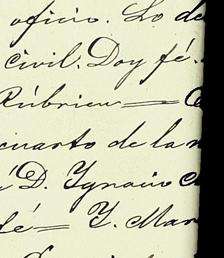 oficio. Lo de
civil. Doy fé.
Rúbrica =
cuarto de la
D. Ygnacio
fé = Y. Mar